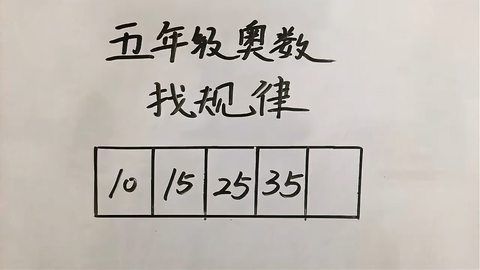 五年级奥数
找规律
10 15 25 35